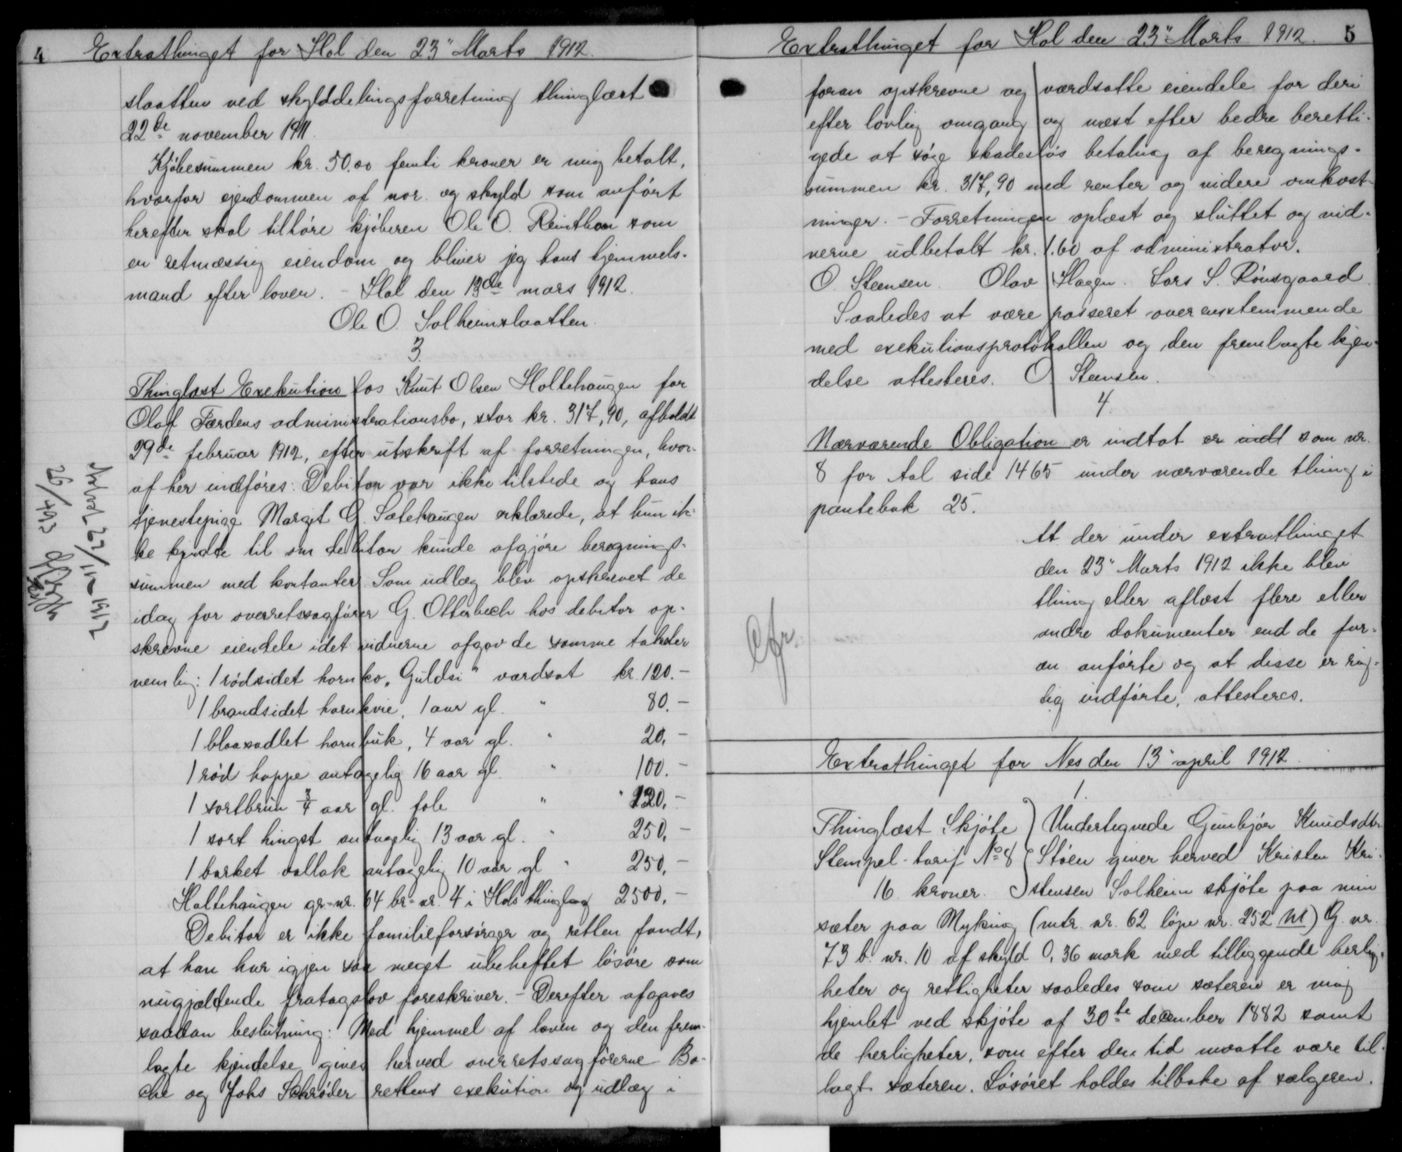 4 Extrathinget for Hol den 23" Marts 1912.
slaatten ved skylddelingsforretning thinglæst
22de november 1911.
Kjöbesummen kr. 50.00 femti kroner er mig betalt,
hvorfor eiendommen af nor. og skyld som anfört
herefter skal tilhöre kjöberen Ole O. som
en retmæssig eiendom og bliver jeg hans hjemmels-
mand efter loven. - Hol den 13de mars 1912.
Ole O. Solheimslaatten.
3.
Thinglæst Exekution hos Knut Olsen Holtehaugen for
Olaf Færdens administrationsbo, stor kr. 317,90, afholdt
29de februar 1912, efter utskrift af forretningen, hvor-
af her indföres: Debitor var ikke tilstede og hans
tjenestepige Margit G. Sætehaugen erklærede, at hun ik-
ke kjendte til om debitor kunde afgjöre beregnings-
summen med kontanter. Som udlæg blev opskrevet de
idag for overretssagförer G. Otterbech hos debitor op-
skrevne eiendele idet vidnerne afgav de samme takster
nemlig: 1 rödsidet hornko "Guldsi" værdsat kr. 120.-
1 brandsidet hornkvie, 1 aar gl. " 80.-
1 blaasadlet hornbuk, 4 aar gl. " 20.-
1 röd hoppe antagelig 16 aar gl " 100.-
1 sortbrun 3/4 aar gl. fole " " 120.-
1 sort hingst antagelig 13 aar gl. " 250.-
1 borket vallak antagelig 10 aar gl " 250.-
Holtehaugen gr-nr. 64 br-nr. 4 i Hols thinglag 2500.-
Debitor er ikke familieforsörger og retten fandt,
at han har igjen saa meget ubeheftet lösöre som
nugjældende fratagslov foreskriver. - Derefter afgaves
saadan beslutning: Med hjemmel af loven og den frem-
lagte kjendelse gives herved overretssagförerne Ba-
che og Johs Schröder rettens exekution og udlæg i
22/11 1912
26/4 93
Extrathinget for Hol den 23" Marts 1912. 5
foran opskrevne og værdsatte eiendele for deri
efter lovlig omgang og næst efter bedre beretti-
gede at söge skadeslös betaling af beregnings-
summen kr. 317,90 med renter og videre omkost-
ninger. - Forretningen oplæst og sluttet og vid-
nerne udbetalt kr. 1.60 af administrator.
O. Steensen. Olav Hagen. Lars S. Rönsgaard.
Saaledes at være passeret overensstemmende
med exekutionsprotokollen og den fremlagte kjen-
delse attesteres. O Steensen.
4.
Nærværende Obligation er indtat er indt som nr.
8 for Aal side 1465 under nærværende thing i
pantebok 25.
At der under extrathinget
den 23" Marts 1912 ikke blev
thing eller aflæst flere eller
andre dokumenter end de for-
an anförte og at disse er rig-
tig indförte, attesteres.
Cfr.
Extrathinget for Nes den 13" april 1912.
1
Thinglæst Skjöte } Undertegnede Gunbjör Knudsdtr.
Stempel-tarif No 8 } Stöen giver herved Kristen Kri-
16 kroner. stensen Solheim skjöte paa min
sæter paa Myking (mtr. nr. 62 löpe nr. 252 M) G. nr.
73 b. nr. 10 af skyld 0,36 mark med tilliggende herlig-
heter og rettigheter saaledes som sæteren er mig
hjemlet ved skjöte af 30te december 1882 samt
de herligheter, som efter den tid maatte være til-
lagt sæteren. Lösöret holdes tilbake af sælgeren.